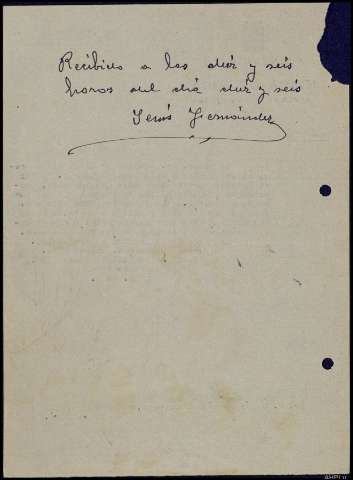 Recibido a las diez y seis
horas del dia diez y seis
Jesús Fernández